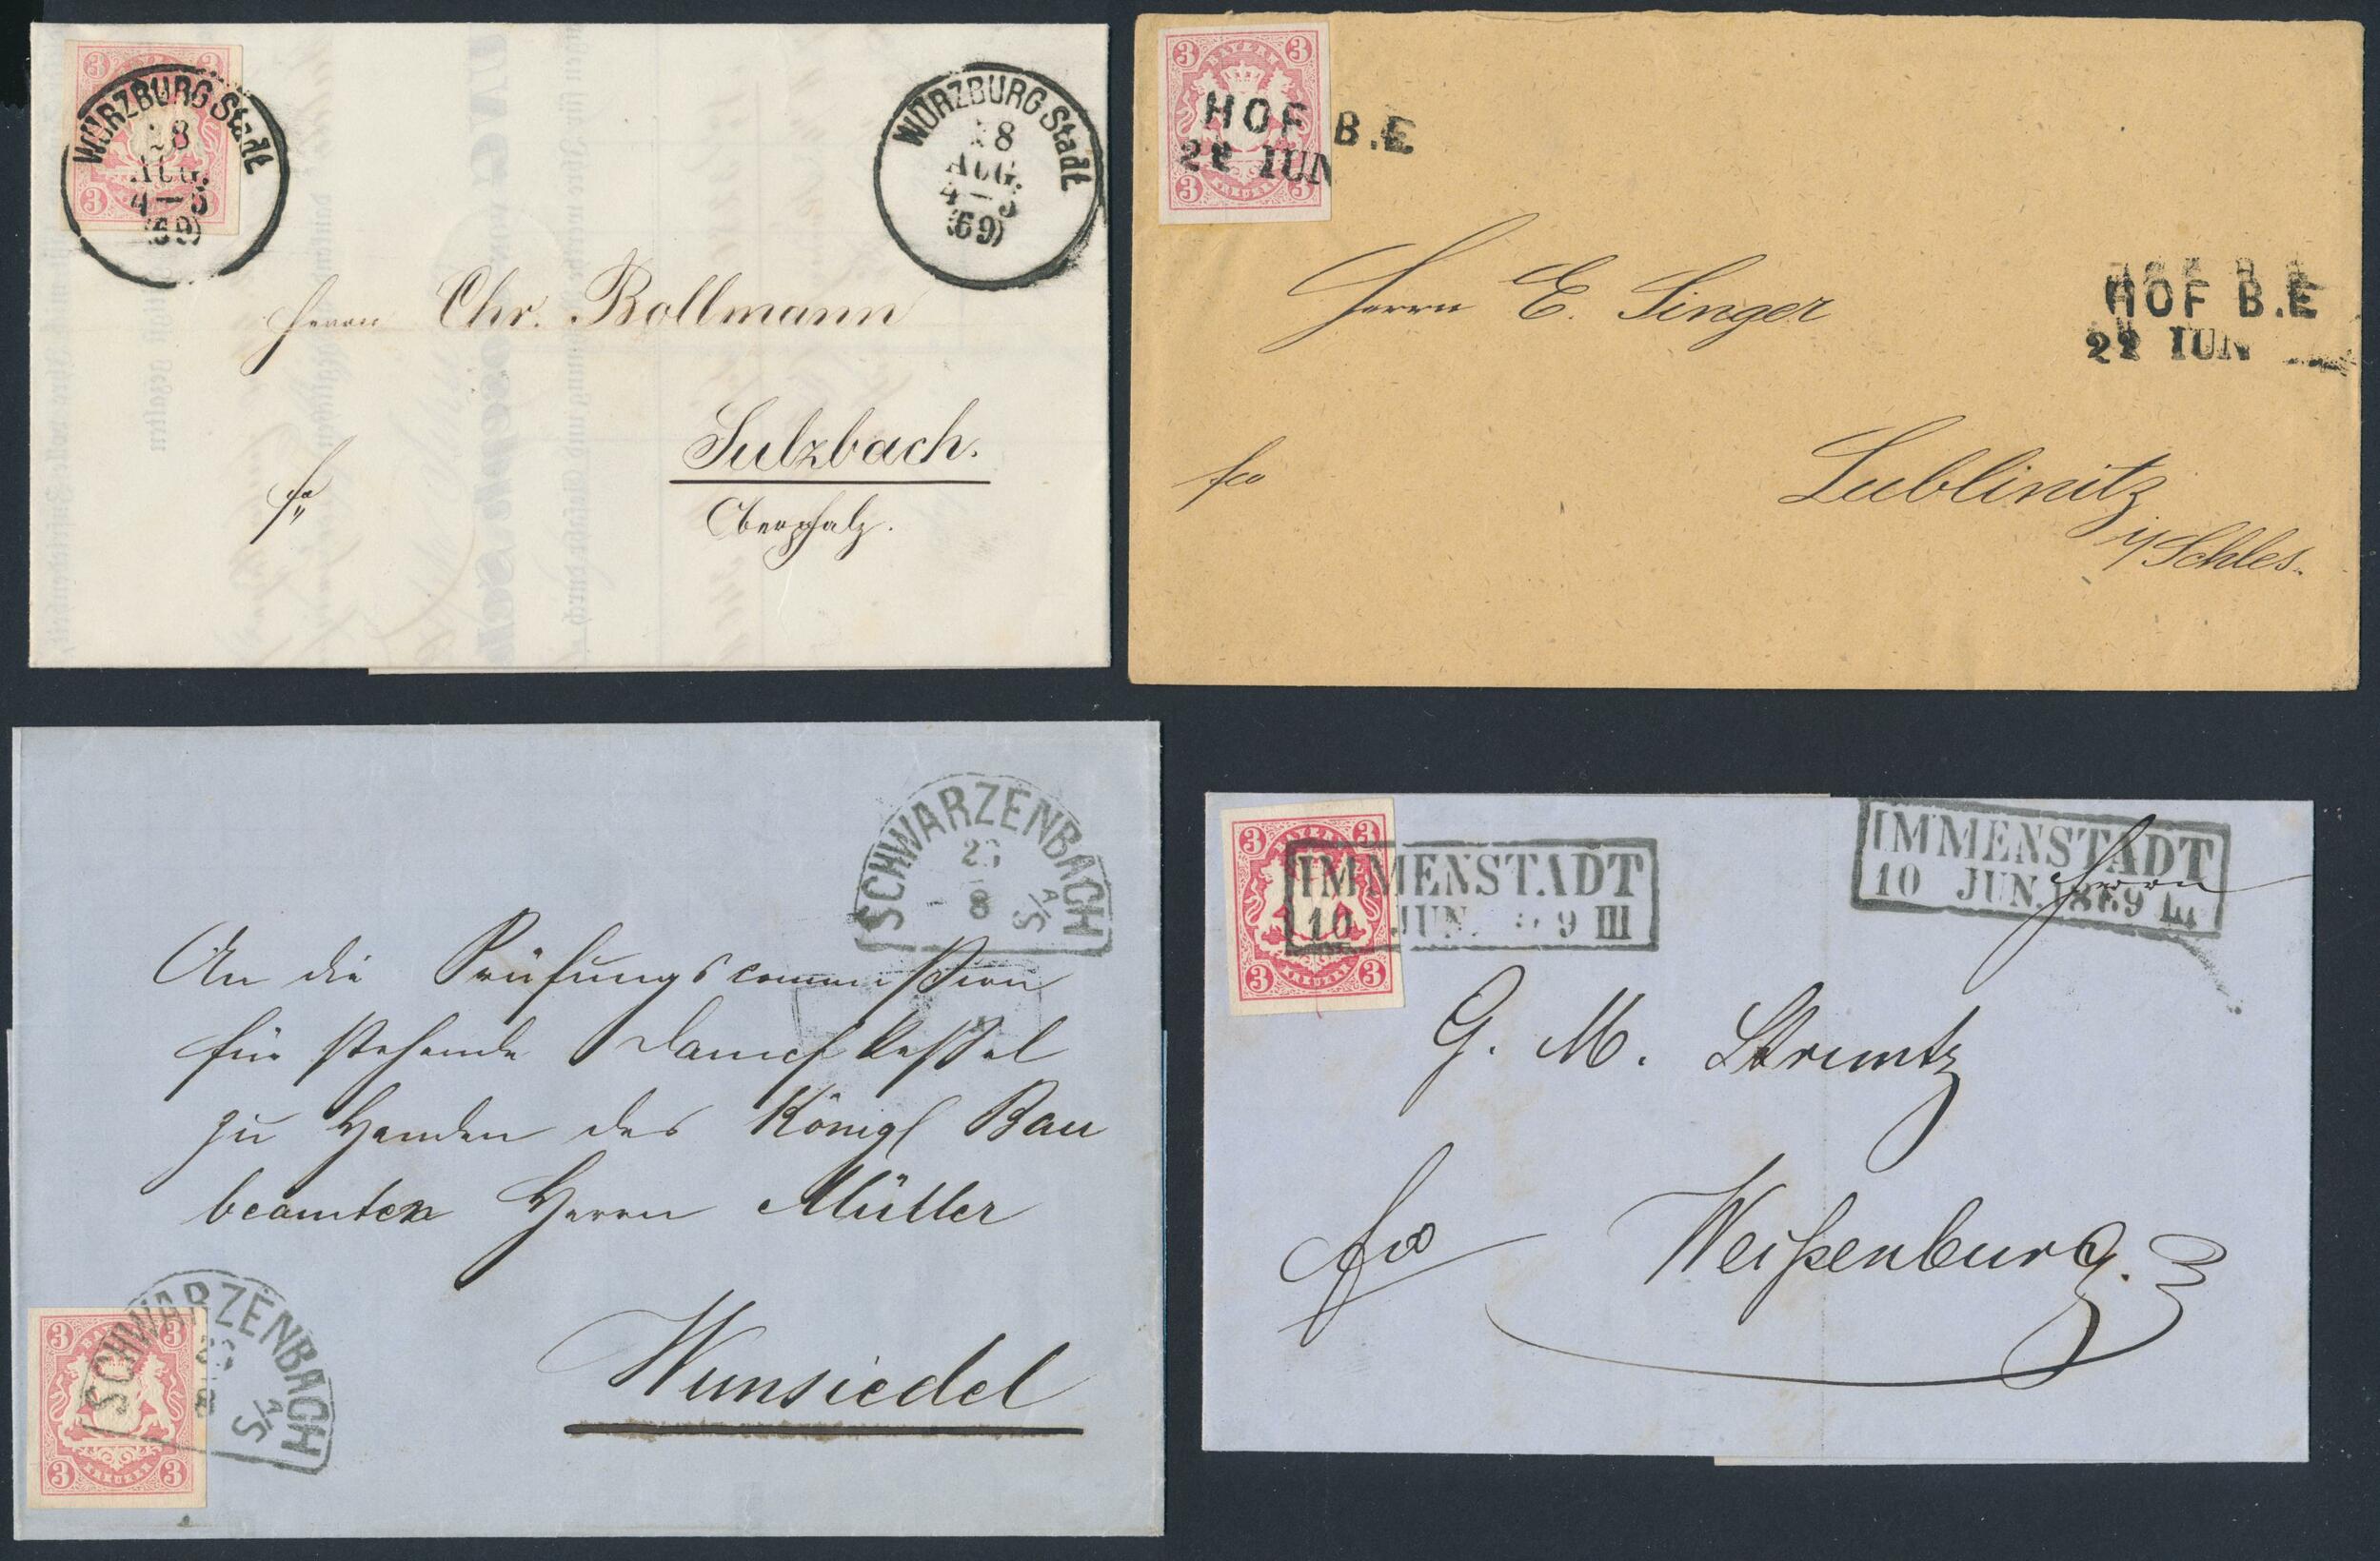 3 3
BAYERN
WÜRZBURG Stadt
28
AUG.
4—5
(69)
KREUZER
3 3
WÜRZBURG Stadt
28
AUG.
4—5
(69)
Herrn Chr. Bollmann
Sulzbach.
fr
Oberpfalz.
3 3
BAYERN
HOF B.E
22 IUN
KREUZER
3 3
HOF B.E
22 IUN
Herrn E. Singer
fco
Lublinitz
i/Schles.
SCHWARZENBACH
8
A/S
An die Prüfungscommission
für stehende Dampfkessel
zu Handen des Königl Bau
beamten Herrn Müller
Wunsiedel
3 3
BAYERN
SCHWARZENBACH
8
A/S
KREUZER
3 3
3 3
BAYERN
IMMENSTADT
10 JUN. 9 III
KREUZER
3 3
IMMENSTADT
10 JUN. 1869 III
Herrn
G. M.
fco
Weißenburg.